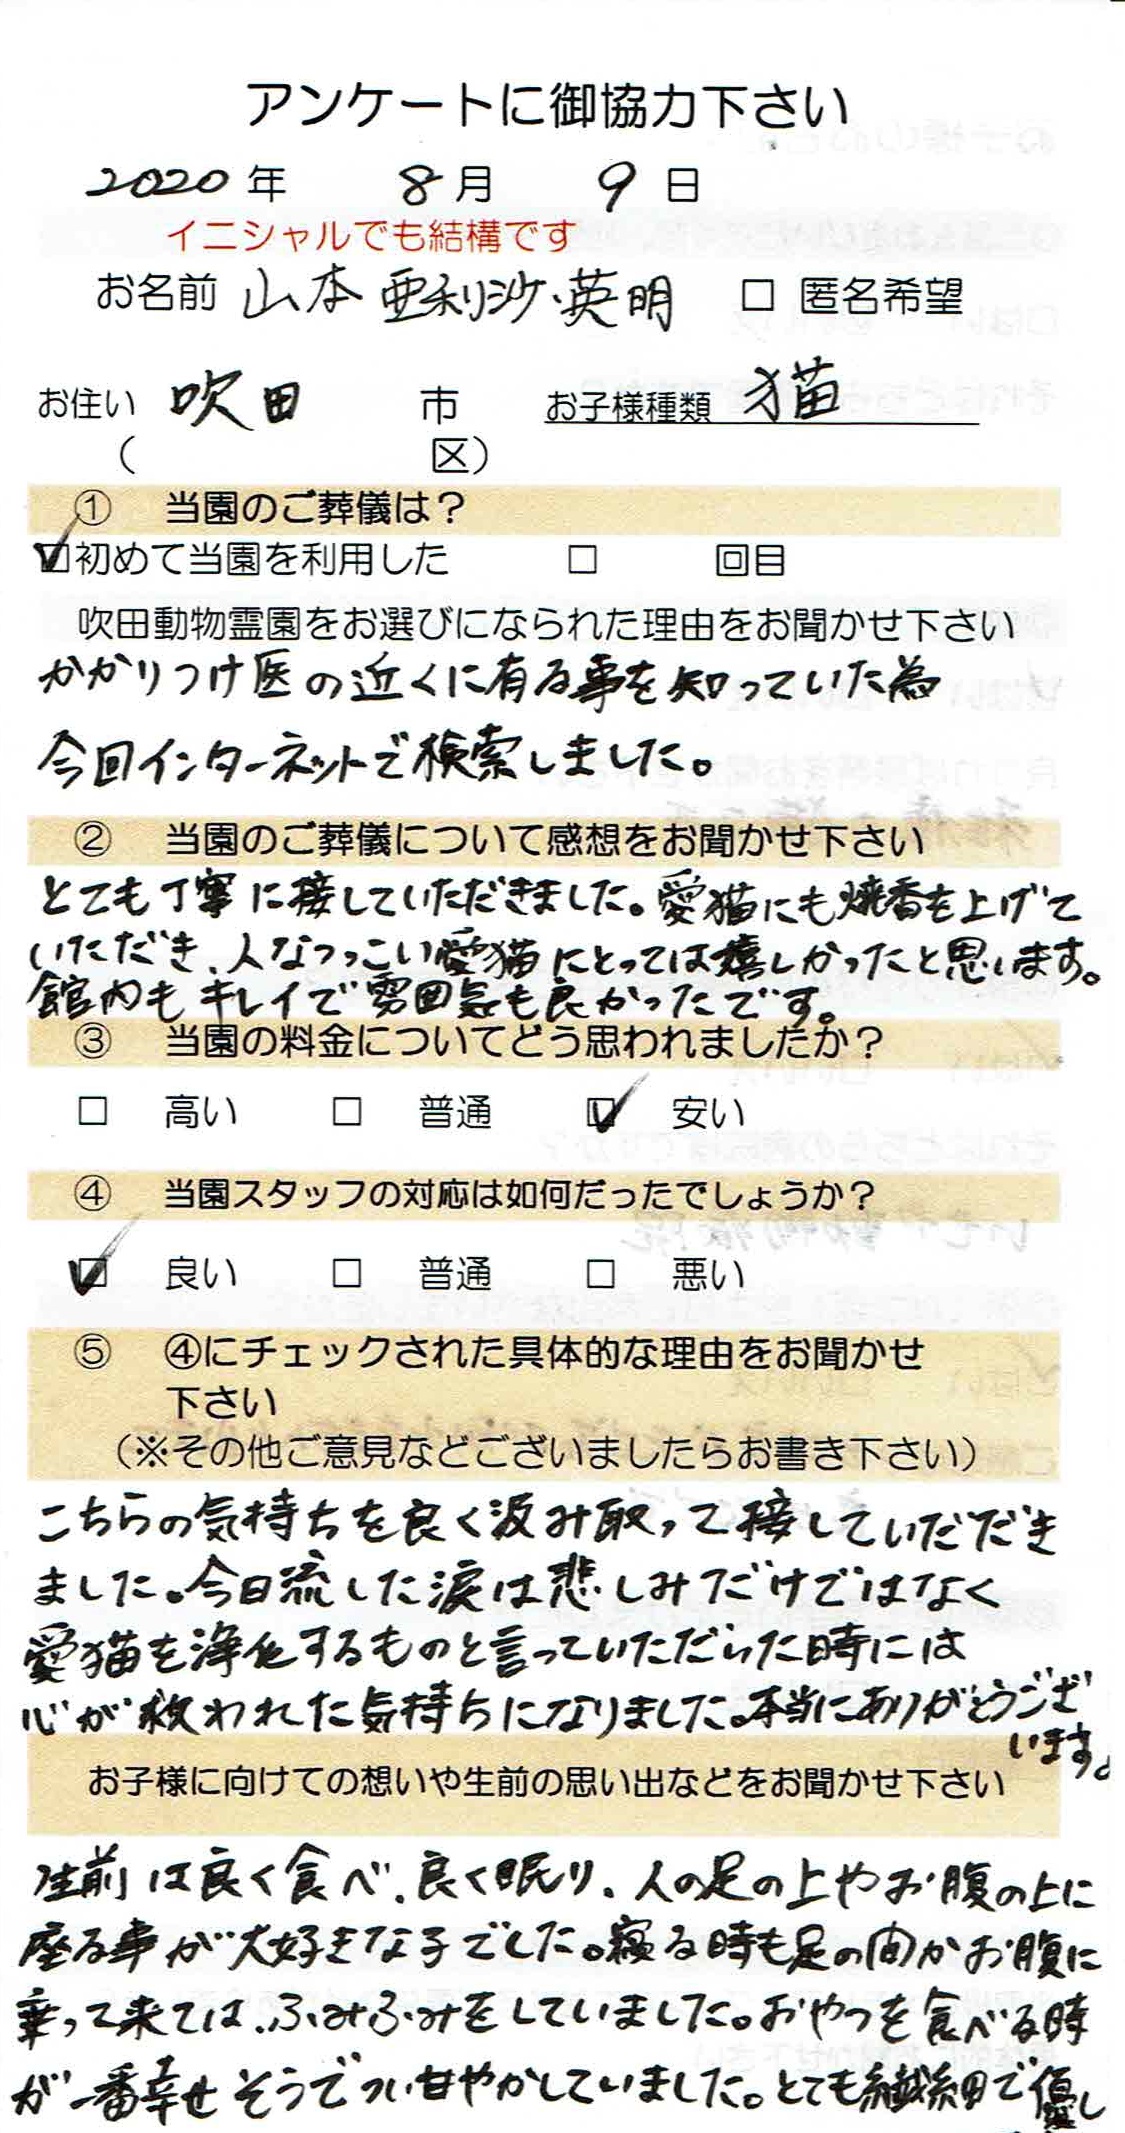 アンケートに御協力下さい
2020年 8月 9日
イニシャルでも結構です
お名前 山本 亜利沙・英明 □ 匿名希望
お住い 吹田 市 お子様種類 猫
( 区)
① 当園のご葬儀は？
☑初めて当園を利用した □ 回目
吹田動物霊園をお選びになられた理由をお聞かせ下さい
かかりつけ医の近くに有る事を知っていた為
今回インターネットで検索しました。
② 当園のご葬儀について感想をお聞かせ下さい
とても丁寧に接していただきました。愛猫にも焼香を上げて
いただき、人なつっこい愛猫にとっては嬉しかったと思います。
館内もキレイで雰囲気も良かったです。
③ 当園の料金についてどう思われましたか？
□ 高い □ 普通 ☑ 安い
④ 当園スタッフの対応は如何だったでしょうか？
☑ 良い □ 普通 □ 悪い
⑤ ④にチェックされた具体的な理由をお聞かせ
下さい
（※その他ご意見などございましたらお書き下さい）
こちらの気持ちを良く汲み取って接していただき
ました。今日流した涙は悲しみだけではなく
愛猫を浄化するものと言っていただいた時には
心が救われた気持ちになりました。本当にありがとうござ
います。
お子様に向けての想いや生前の思い出などをお聞かせ下さい
生前は良く食べ、良く眠り、人の足の上やお腹の上に
座る事が大好きな子でした。寝る時も足の間かお腹に
乗って来ては、ふみふみをしていました。おやつを食べる時
が一番幸せそうでつい甘やかしていました。とても繊細で優し